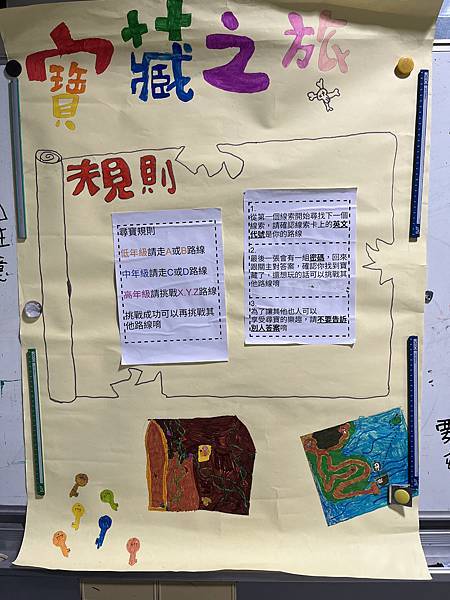 寶藏之旅
規則
尋寶規則
低年級請走A或B路線
中年級請走C或D路線
高年級請挑戰X.Y.Z路線
挑戰成功可以再挑戰其
他路線唷
1.
從第一個線索開始尋找下一個
線索，請確認線索卡上的英文
代號是你的路線
2.
最後一張會有一組密碼，回來
跟關主對答案，確認你找到寶
藏了，還想玩的話可以挑戰其
他路線唷
3.
為了讓其他也人可以
享受尋寶的樂趣，請不要告訴
別人答案唷